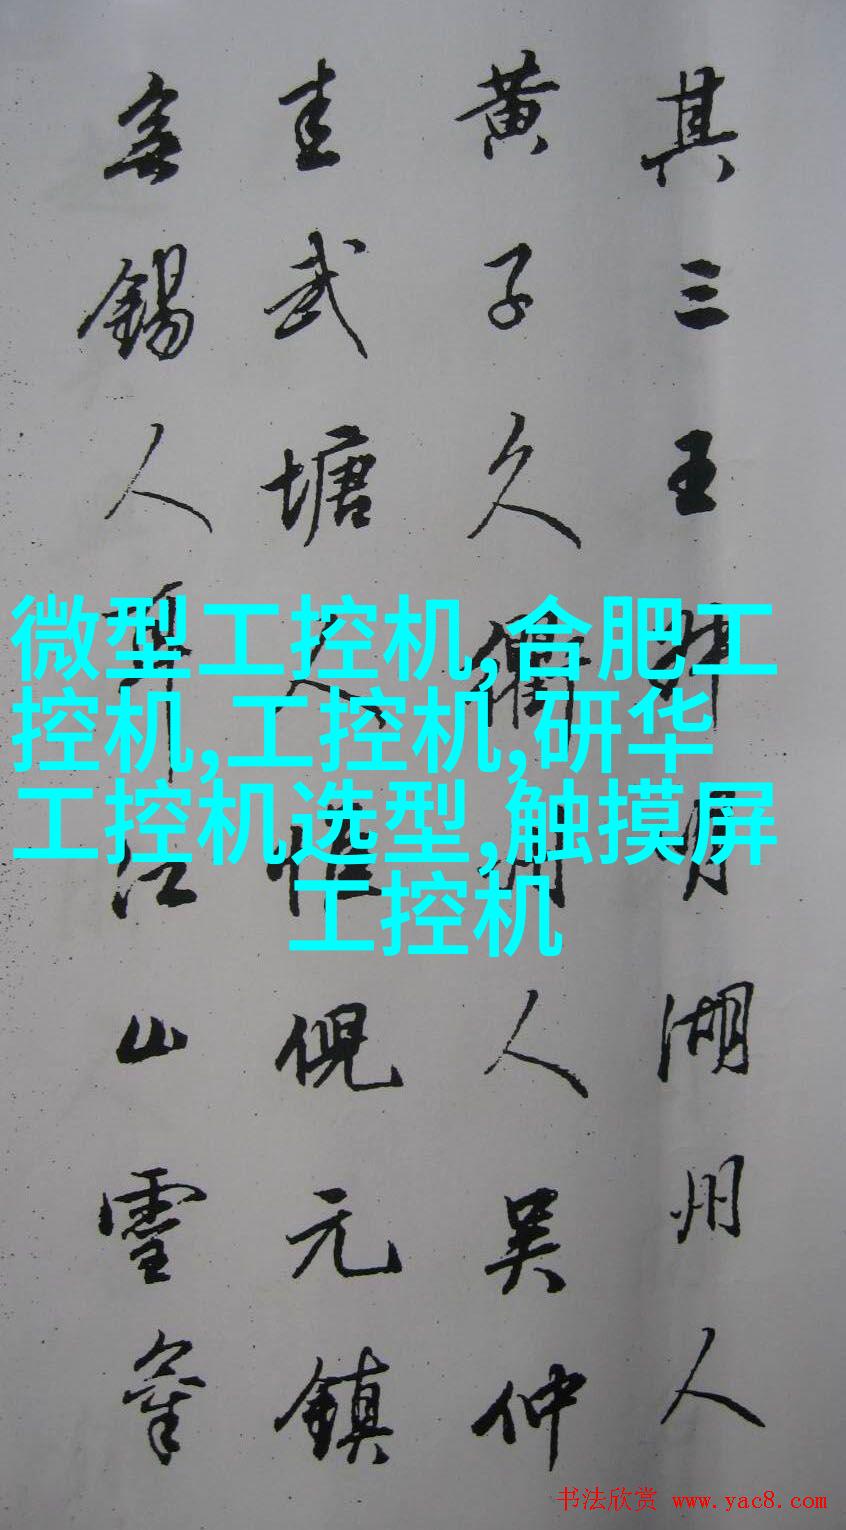 其三王叔明湖州人
黄子久衢州人吴仲
圭武塘人惟倪元镇
无锡人耳江山灵气
微型工控机,合肥工
控机,工控机,研华
工控机选型,触摸屏
工控机
书法欣赏 www.yac8.com